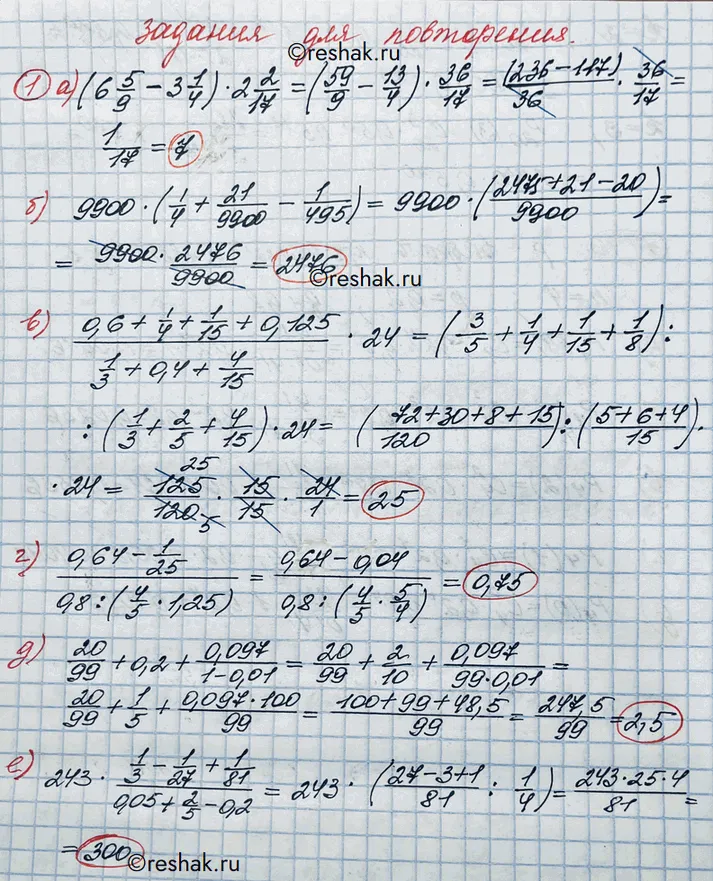 Задания для повторения.
©reshak.ru
1 а) (6 5/9 − 3 1/4) · 2 2/17 = (59/9 − 13/4) · 36/17 = (236−117)/36 · 36/17 =
1/17 = 7
б) 9900 · (1/4 + 21/9900 − 1/495) = 9900 · (2475+21−20)/9900) =
= 9900 · 2476/9900 = 2476
©reshak.ru
в) (0,6 + 1/4 + 1/15 + 0,125)/(1/3 + 0,4 + 4/15) · 24 = (3/5 + 1/4 + 1/15 + 1/8) :
: (1/3 + 2/5 + 4/15) · 24 = (72+30+8+15)/120) : (5+6+4)/15) ·
· 24 = 25 125/120 5 · 15/15 · 24/1 = 25
г) (0,64 − 1/25)/(0,8 : (4/5 · 1,25)) = (0,64 − 0,04)/(0,8 : (4/5 · 5/4)) = 0,75
д) 20/99 + 0,2 + 0,097/(1−0,01) = 20/99 + 2/10 + 0,097/(99·0,01) =
20/99 + 1/5 + (0,097·100)/99 = (100+99+48,5)/99 = 247,5/99 = 2,5
е) 243 · (1/3 − 1/27 + 1/81)/(0,05 + 2/5 − 0,2) = 243 · (27−3+1)/81 : 1/4) = (243·25·4)/81 =
= 300
©reshak.ru